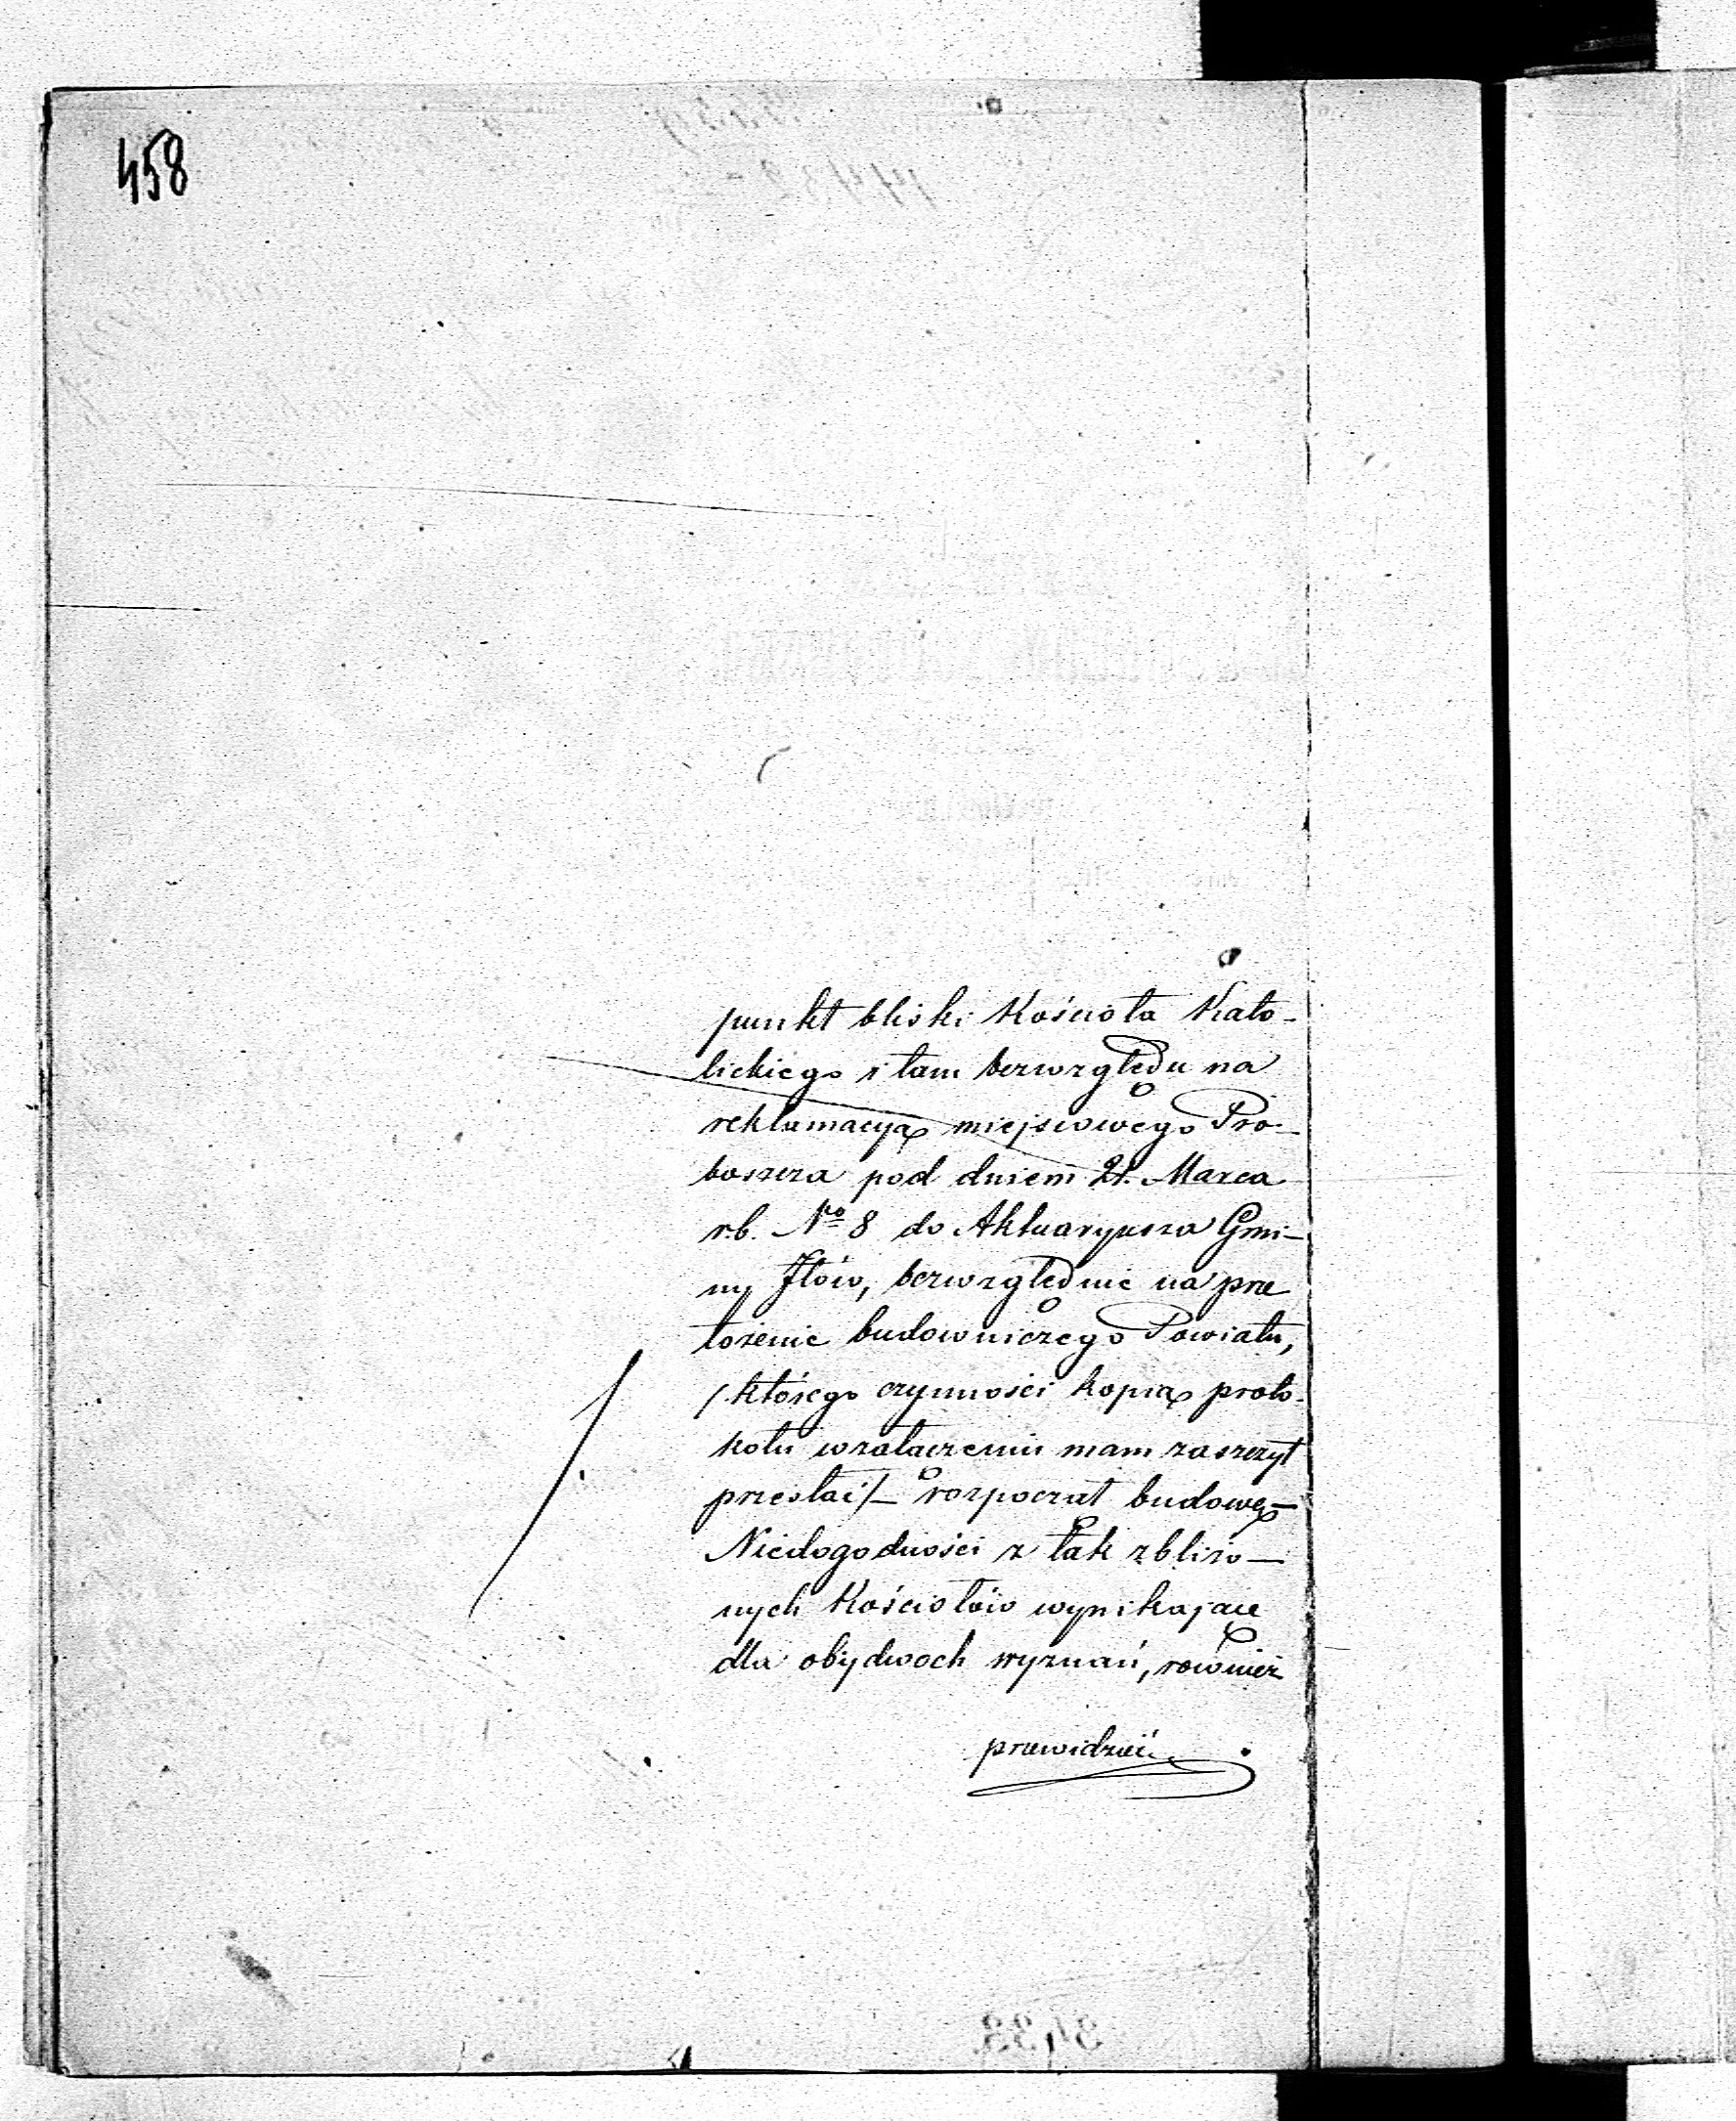 458
punkt bliski Kościoła Kato-
lickiego i tam bezwzględu na
reklamacyą miejscowego Pro-
boszcza pod dniem 21. Marca
r.b. No 8 do Aktuaryusza Gmi-
ny Iłów, bezwzględnie na prze
łożenie budowniczego Powiatu,
/którego czynności kopią proto-
kołu wzałączeniu mam zaszczyt
przesłać/- rozpoczął budowę-
Niedogodności z tak zbliżo-
nych Kościołów wynikające
dla obydwoch wyznań, rownież
przewidzieć